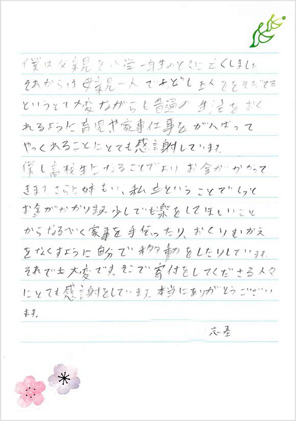 僕は父親を小学一年生のときに亡くしました
それからは母親一人で子ども三人をそだてる
というとても大変ながらも普通の生活をおく
れるように育児や家事仕事をがんばって
やってくれることにとても感謝しています。
僕も高校生になることでよりお金がかかって
きます さらに姉もい、私立ということでもっと
お金がかかります。少しでも楽をしてほしいこと
からなるべく家事を手伝ったり、おくりむかえ
をなくすように自分で移動をしたりしています。
それでも大変です。そこで寄付をしてくださる人々
にとても感謝をしています。本当にありがとうござい
ます。